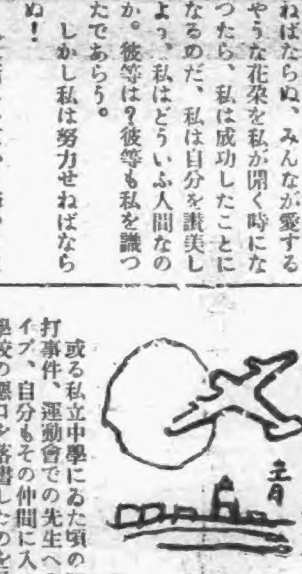 ねばたらぬ、みんなが愛する
やうな花朶を私が開く時にな
つたら、私は成功したことに
なるのだ、私は自分を讃美し
よう、私はどういふ人間なの
か。彼等は?彼等も私を識つ
たであらう。
しかし私は努力せねばなら
ぬ!
或る私立中學にゐた頃の
打事件、運動會での先生へ
イプ、自分もその仲間に入
學校の惡口を落書したのを